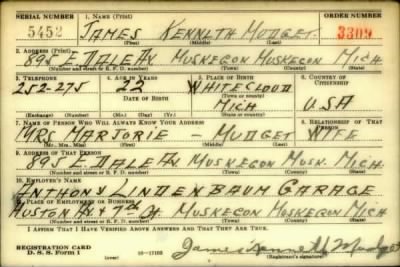 SERIAL NUMBER 1. NAME (Print) ORDER NUMBER
5452 JAMES KENNETH MUDGET. 3309
(First) (Middle) (Last)
2. ADDRESS (Print)
895 E DALE AV. MUSKEGON MUSKEGON MICH
(Number and street or R. F. D. number) (Town) (County) (State)
3. TELEPHONE 4. AGE IN YEARS 5. PLACE OF BIRTH 6. COUNTRY OF CITIZENSHIP
252-275 22 WHITE CLOUD
MICH USA
(Exchange) (Number) (Mo.) (Day) (Yr.) (State or country)
7. NAME OF PERSON WHO WILL ALWAYS KNOW YOUR ADDRESS 8. RELATIONSHIP OF THAT PERSON
MRS MARJORIE — MUDGET WIFE
(Mr., Mrs., Miss) (First) (Middle) (Last)
9. ADDRESS OF THAT PERSON
895 E DALE AV. MUSKEGON MUSK. MICH.
(Number and street or R. F. D. number) (Town) (County) (State)
10. EMPLOYER'S NAME
ANTHONY LINDENBAUM GARAGE
11. PLACE OF EMPLOYMENT OR BUSINESS
HUSTON AV. & 7th St. MUSKEGON MUSKEGON MICH
(Number and street or R. F. D. number) (Town) (County) (State)
I AFFIRM THAT I HAVE VERIFIED ABOVE ANSWERS AND THAT THEY ARE TRUE.
REGISTRATION CARD
D. S. S. Form 1 16—17105 James Kenneth Mudget
(Registrant's signature)